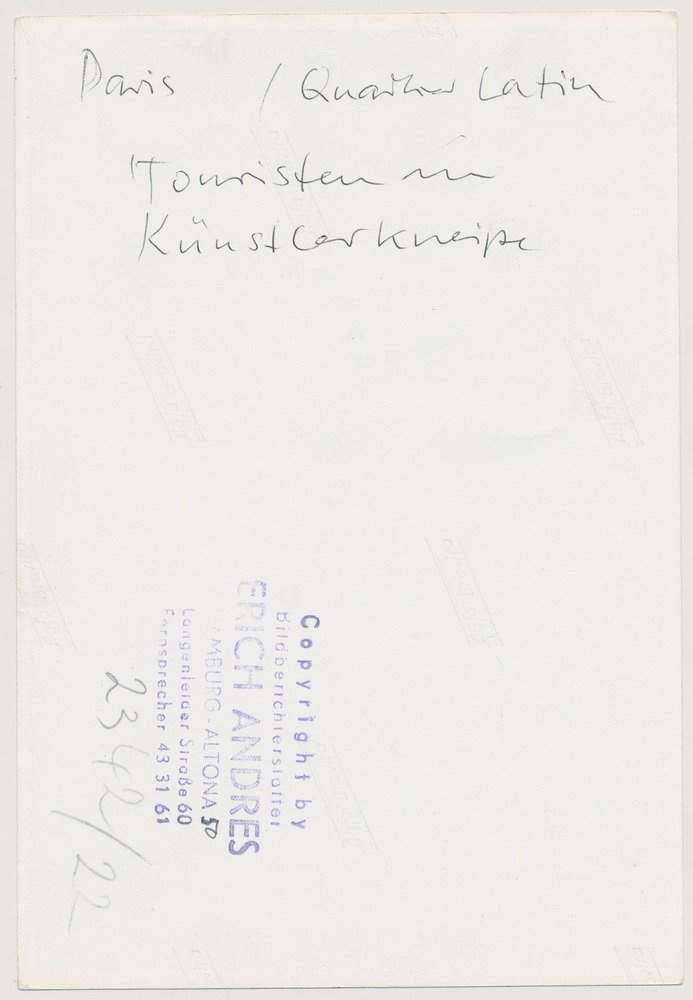 Paris / Quartier Latin
Touristen in
Künstlerkneipe
Copyright by
Bildberichterstatter
ERICH ANDRES
MBURG-ALTONA 50
Langenfelder Straße 60
Fernsprecher 43 31 61
2342/22